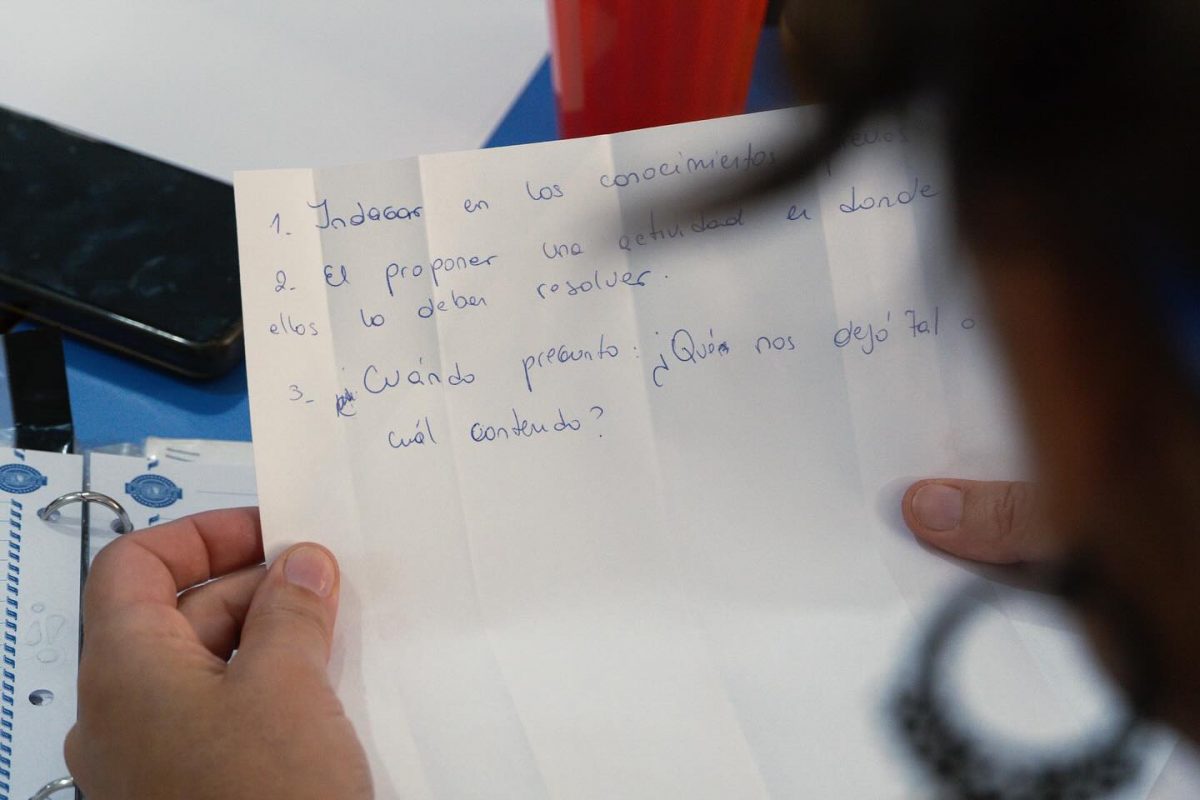 1. Indagar en los conocimientos previos
2. El proponer una actividad en donde
ellos lo deben resolver.
3. Cuándo pregunto: ¿Qué nos dejó tal o
cuál contenido?